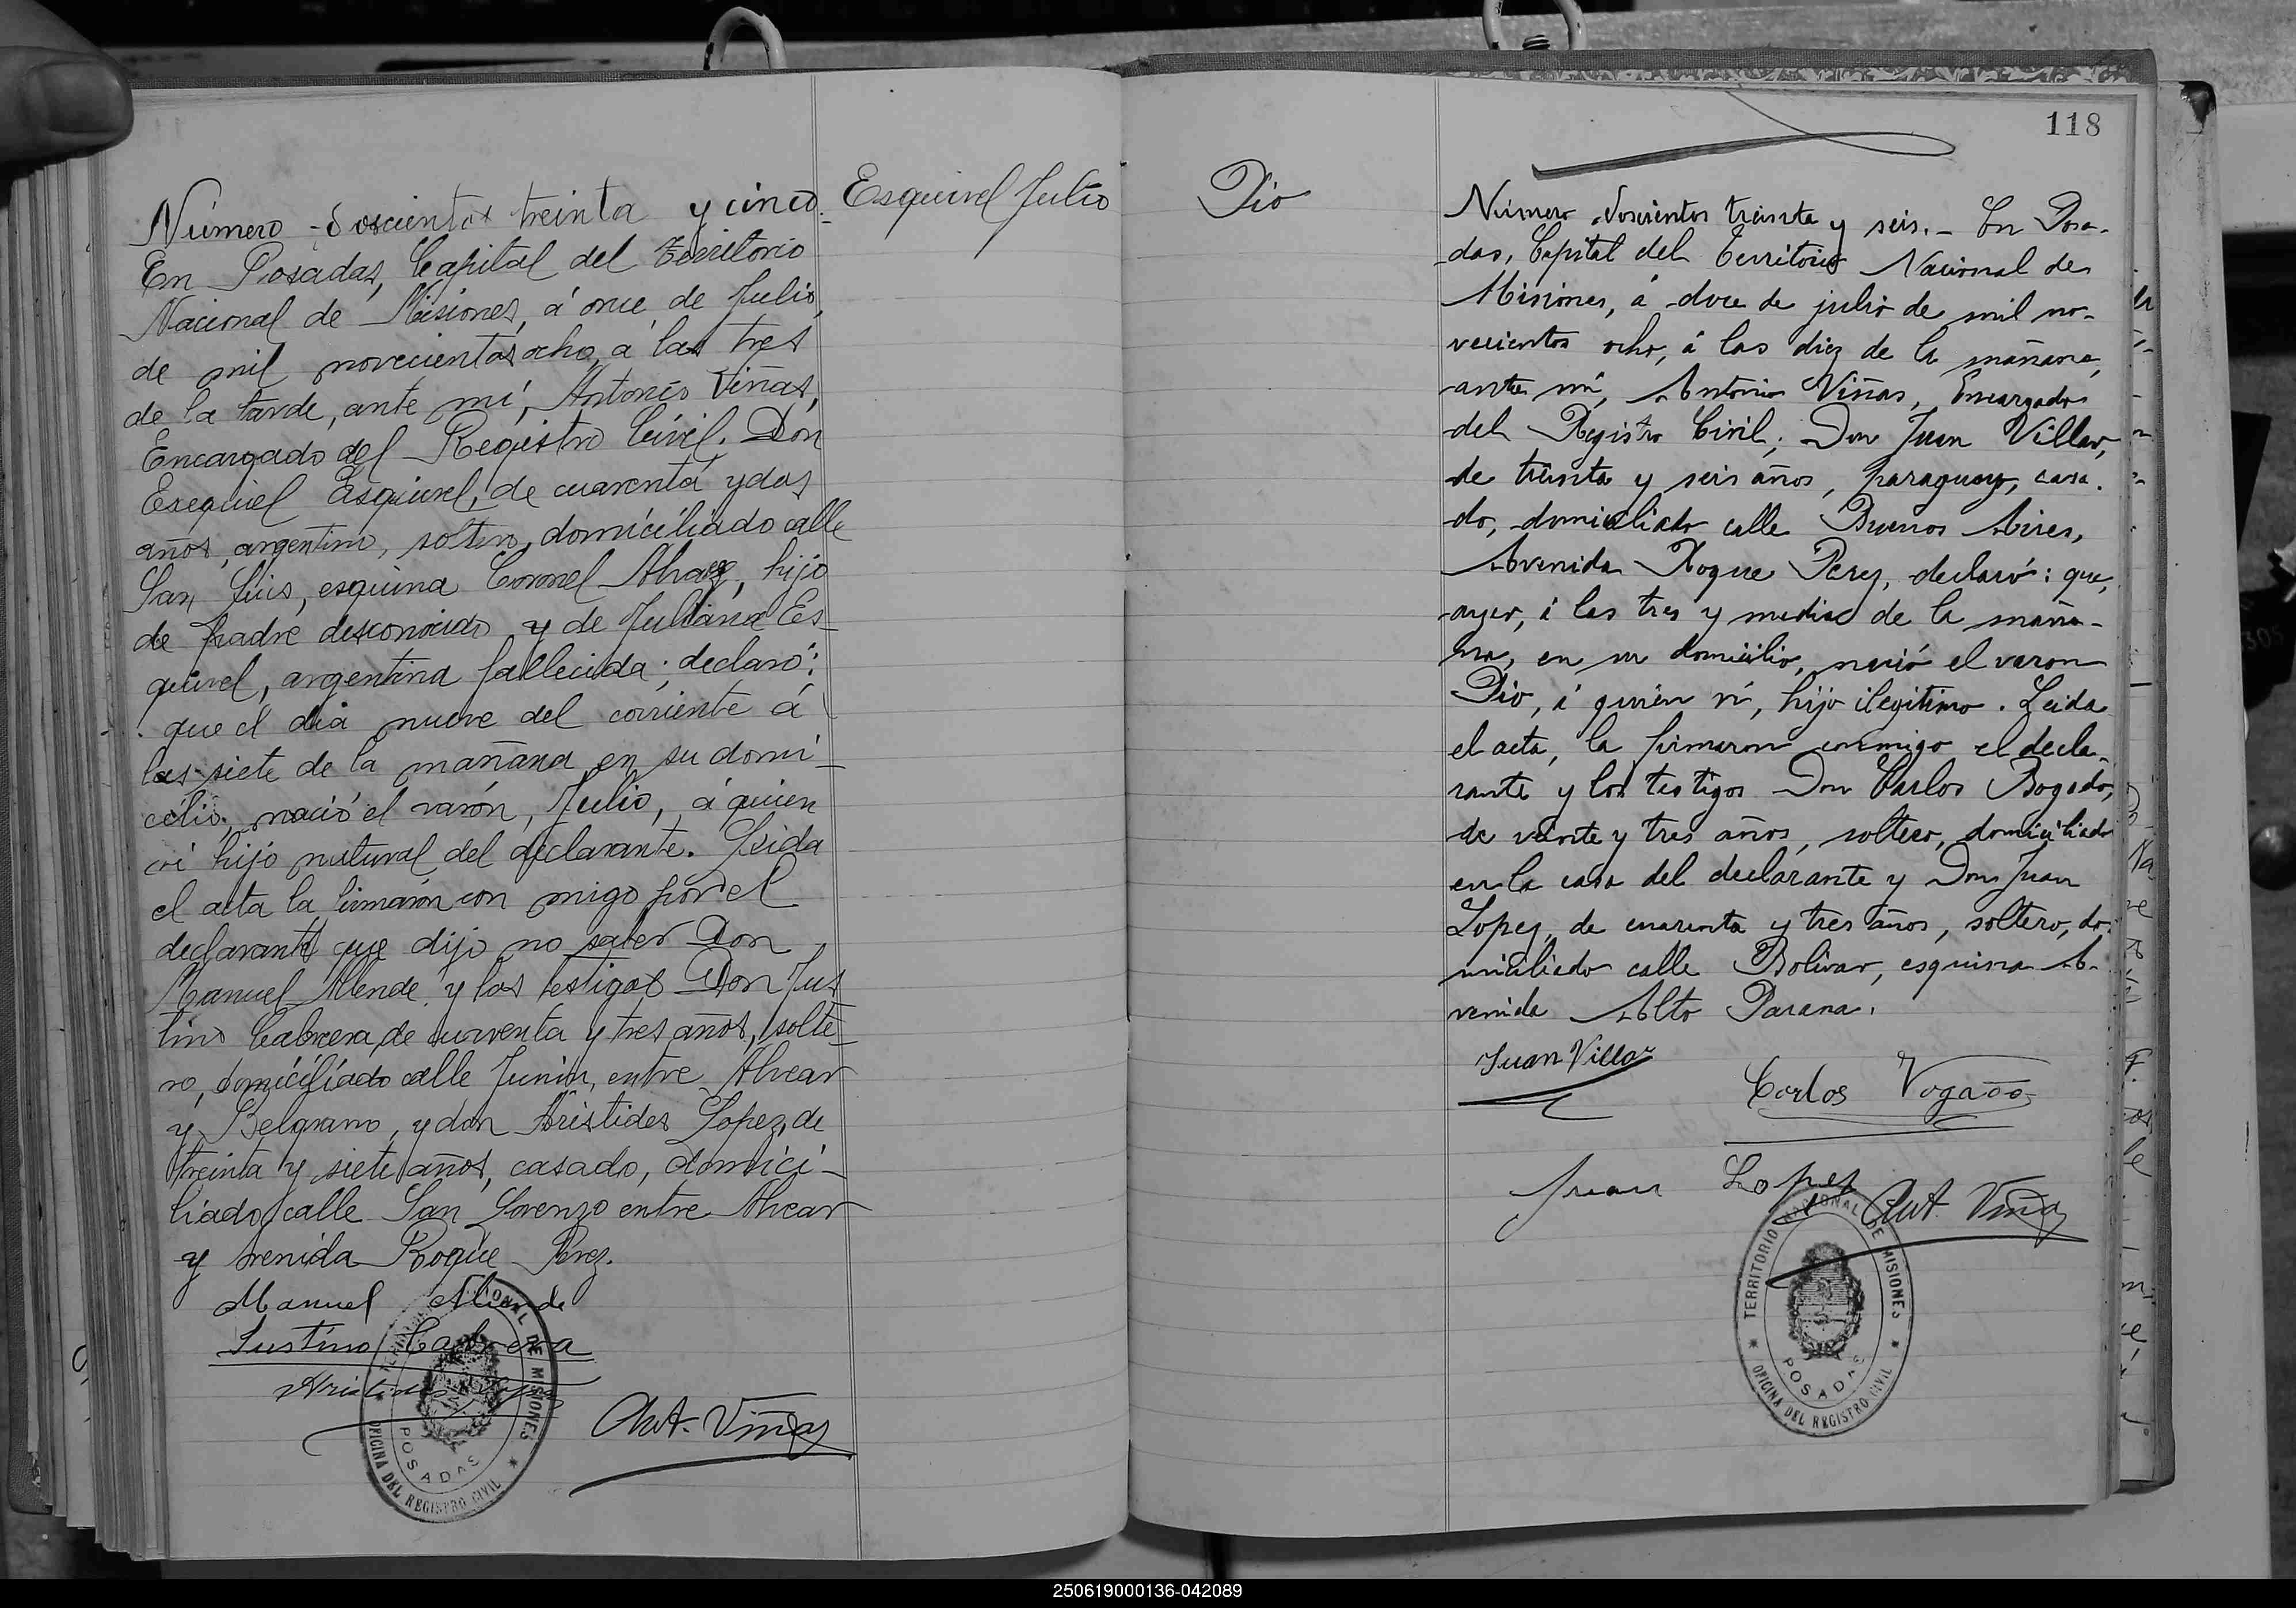 Número doscientos treinta y cinco.
En Posadas, Capital del Territorio
Nacional de Misiones, á once de Julio,
de mil novecientos ocho, á las tres
de la tarde, ante mí, Antonio Viñas,
Encargado del Registro Civil. Don
Exequiel Esquivel, de cuarenta y dos
años, argentino, soltero, domiciliado calle
San Luis, esquina Coronel Alvarez, hijo
de padre desconocido y de Juliana Es-
quivel, argentina fallecida; declaró:
que el dia nueve del corriente á
las siete de la mañana en su domi-
cilio, nació el varón, Julio, á quien
ví hijo natural del declarante. Leida
el acta la firmarón con migo por el
declarante que dijo no saber Don
Manuel Allende y los testigos Don Jus
tino Cabrera, de cuarenta y tres años, solte-
ro, domiciliado calle Junin, entre Alvear
y Belgrano, y don Aristides Lopez, de
treinta y siete años, casado, domici-
liado calle San Lorenzo entre Alvear
y venida Roque Perez.
Manuel Allende
Justino Cabrera
Aristides Lopez
Ant. Viñas
TERRITORIO NACIONAL DE MISIONES
POSADAS
OFICINA DEL REGISTRO CIVIL
Esquivel Julio
Pio
118
Número doscientos treinta y seis.- En Posa-
das, Capital del Territorio Nacional de
Misiones, á doce de julio de mil no-
vecientos ocho, á las diez de la mañana,
ante mí, Antonio Viñas, Encargado
del Registro Civil; Don Juan Villar,
de treinta y seis años, paraguayo, casa-
do, domiciliado calle Buenos Aires,
Avenida Roque Perez, declaró: que,
ayer, á las tres y media de la maña-
na, en su domicilio, nació el varon
Pio, á quién ví, hijo ilegitimo. Leida
el acta, la firmaron conmigo el decla-
rante y los testigos Don Carlos Bogado,
de veinte y tres años, soltero, domiciliado
en la casa del declarante y Don Juan
Lopez, de cuarenta y tres años, soltero, do-
miciliado calle Bolivar, esquina A-
venida Alto Parana.
Juan Villar
Carlos Vogado
Juan Lopez
Ant. Viñas
TERRITORIO NACIONAL DE MISIONES
POSADAS
OFICINA DEL REGISTRO CIVIL
250619000136-042089